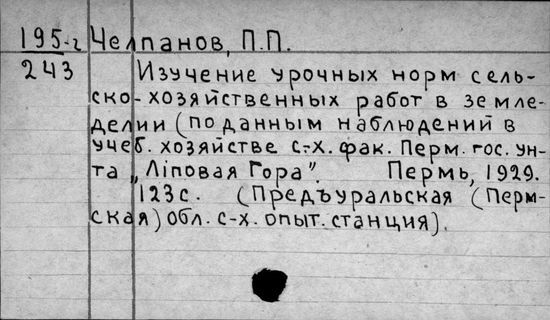 195-г Челпанов, П.П.
243 Изучение урочных норм сель-
ско-хозяйственных работ в земле-
делии (по данным наблюдений в
учеб. хозяйстве с.-х. фак. Перм. гос. ун-
та „Лiповая Гора". Пермь, 1929.
123с. (Предъуральская (Перм-
ская) обл. с-х. опыт. станция).